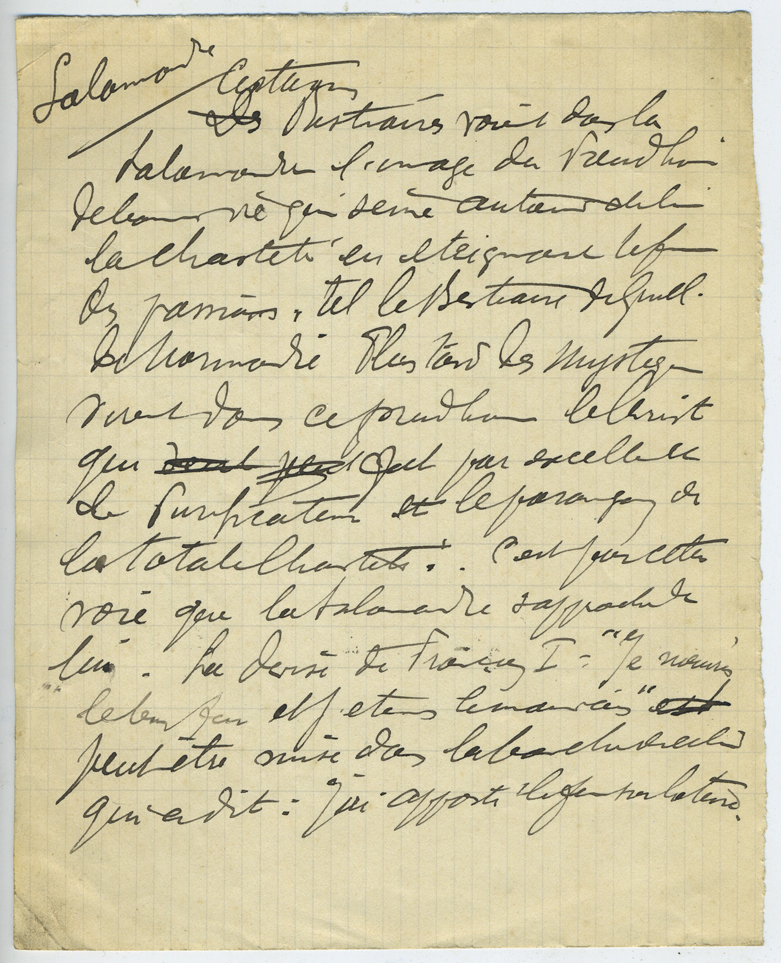 Salamandre
Certains
Des Bestiaires voient dans la
Salamandre l'image du Preudhom
de bonne vie qui sème autour de lui
la chasteté en eteignant le feu
des passions, tel le Bestiaire de Guill.
de Normandie Plus tard des Mystiques
virent dans ce prudhom le Christ
qui veut peut fut par excellence
le Purificateur et le parangon de
la totale Chasteté. C'est par cette
voie que la Salamandre s'approche de
lui. La devise de François I = "Je nourris
le bon feu et j'eteins le mauvais" est
peut être mise dans la bouche de celui
qui a dit : j'ai apporté le feu sur la terre.